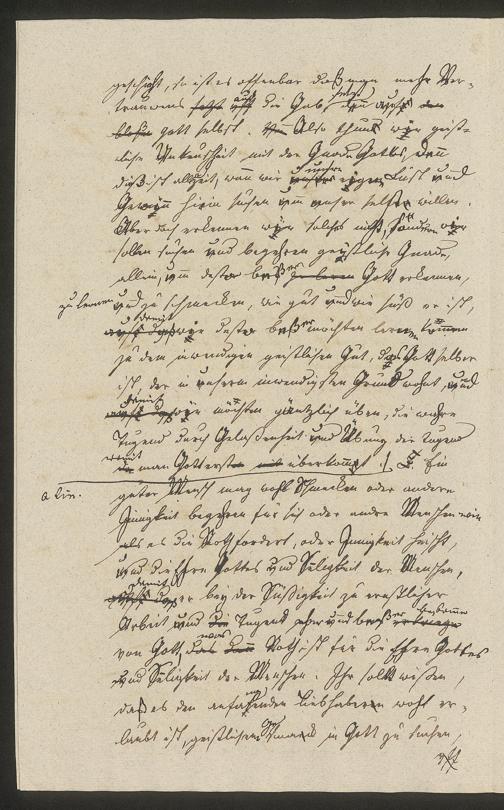 geschicht, so ist es offenbar daß man mehr Ver-
trauens auf die Gab, denn auff
Gott selbst. Also thun wir geist-
liche Unkeuschheit mit der Gnade Gottes, denn
diß ist allzeit, wann wir unsere eigen Lust und
Gewinn hierin suchen umb unser selbst willen.
Aber doch erkennen wir solches nicht, sondern wir
sollen suchen und begehren geistliche Gnade,
allein, umb desto besser Gott erkennen,
zu lernen und zu schmecken, wie gut und wie süß er ist,
und damit wir desto besser möchten lernen kommen
zu dem inwendigen geistlichen Gut, das Gott selber
ist, der in unserm inwendigsten Grund wohnt, und
damit wir möchten gäntzlich üben, die wahre
Tugend durch Gelassenheit und Übung der Tugend
womit man Gott erst überkompt. Ein
guter Mensch mag wohl schmecken oder andere
Innigkeit begehren für sich oder andre Menschen wie
als es die Noth fordert, oder Innigkeit heischt,
und die Ehre Gottes und Seligkeit der Menschen,
damit er bey der Süssigkeit zu ernstlicher
Arbeit und Tugend eher und besser bekomme
von Gott, was Noth ist für die Ehre Gottes
und Seligkeit der Menschen. Ihr sollt wissen,
daß es den anfahenden Liebhabern wohl er-
laubt ist, geistlichen Schmack in Gott zu suchen,